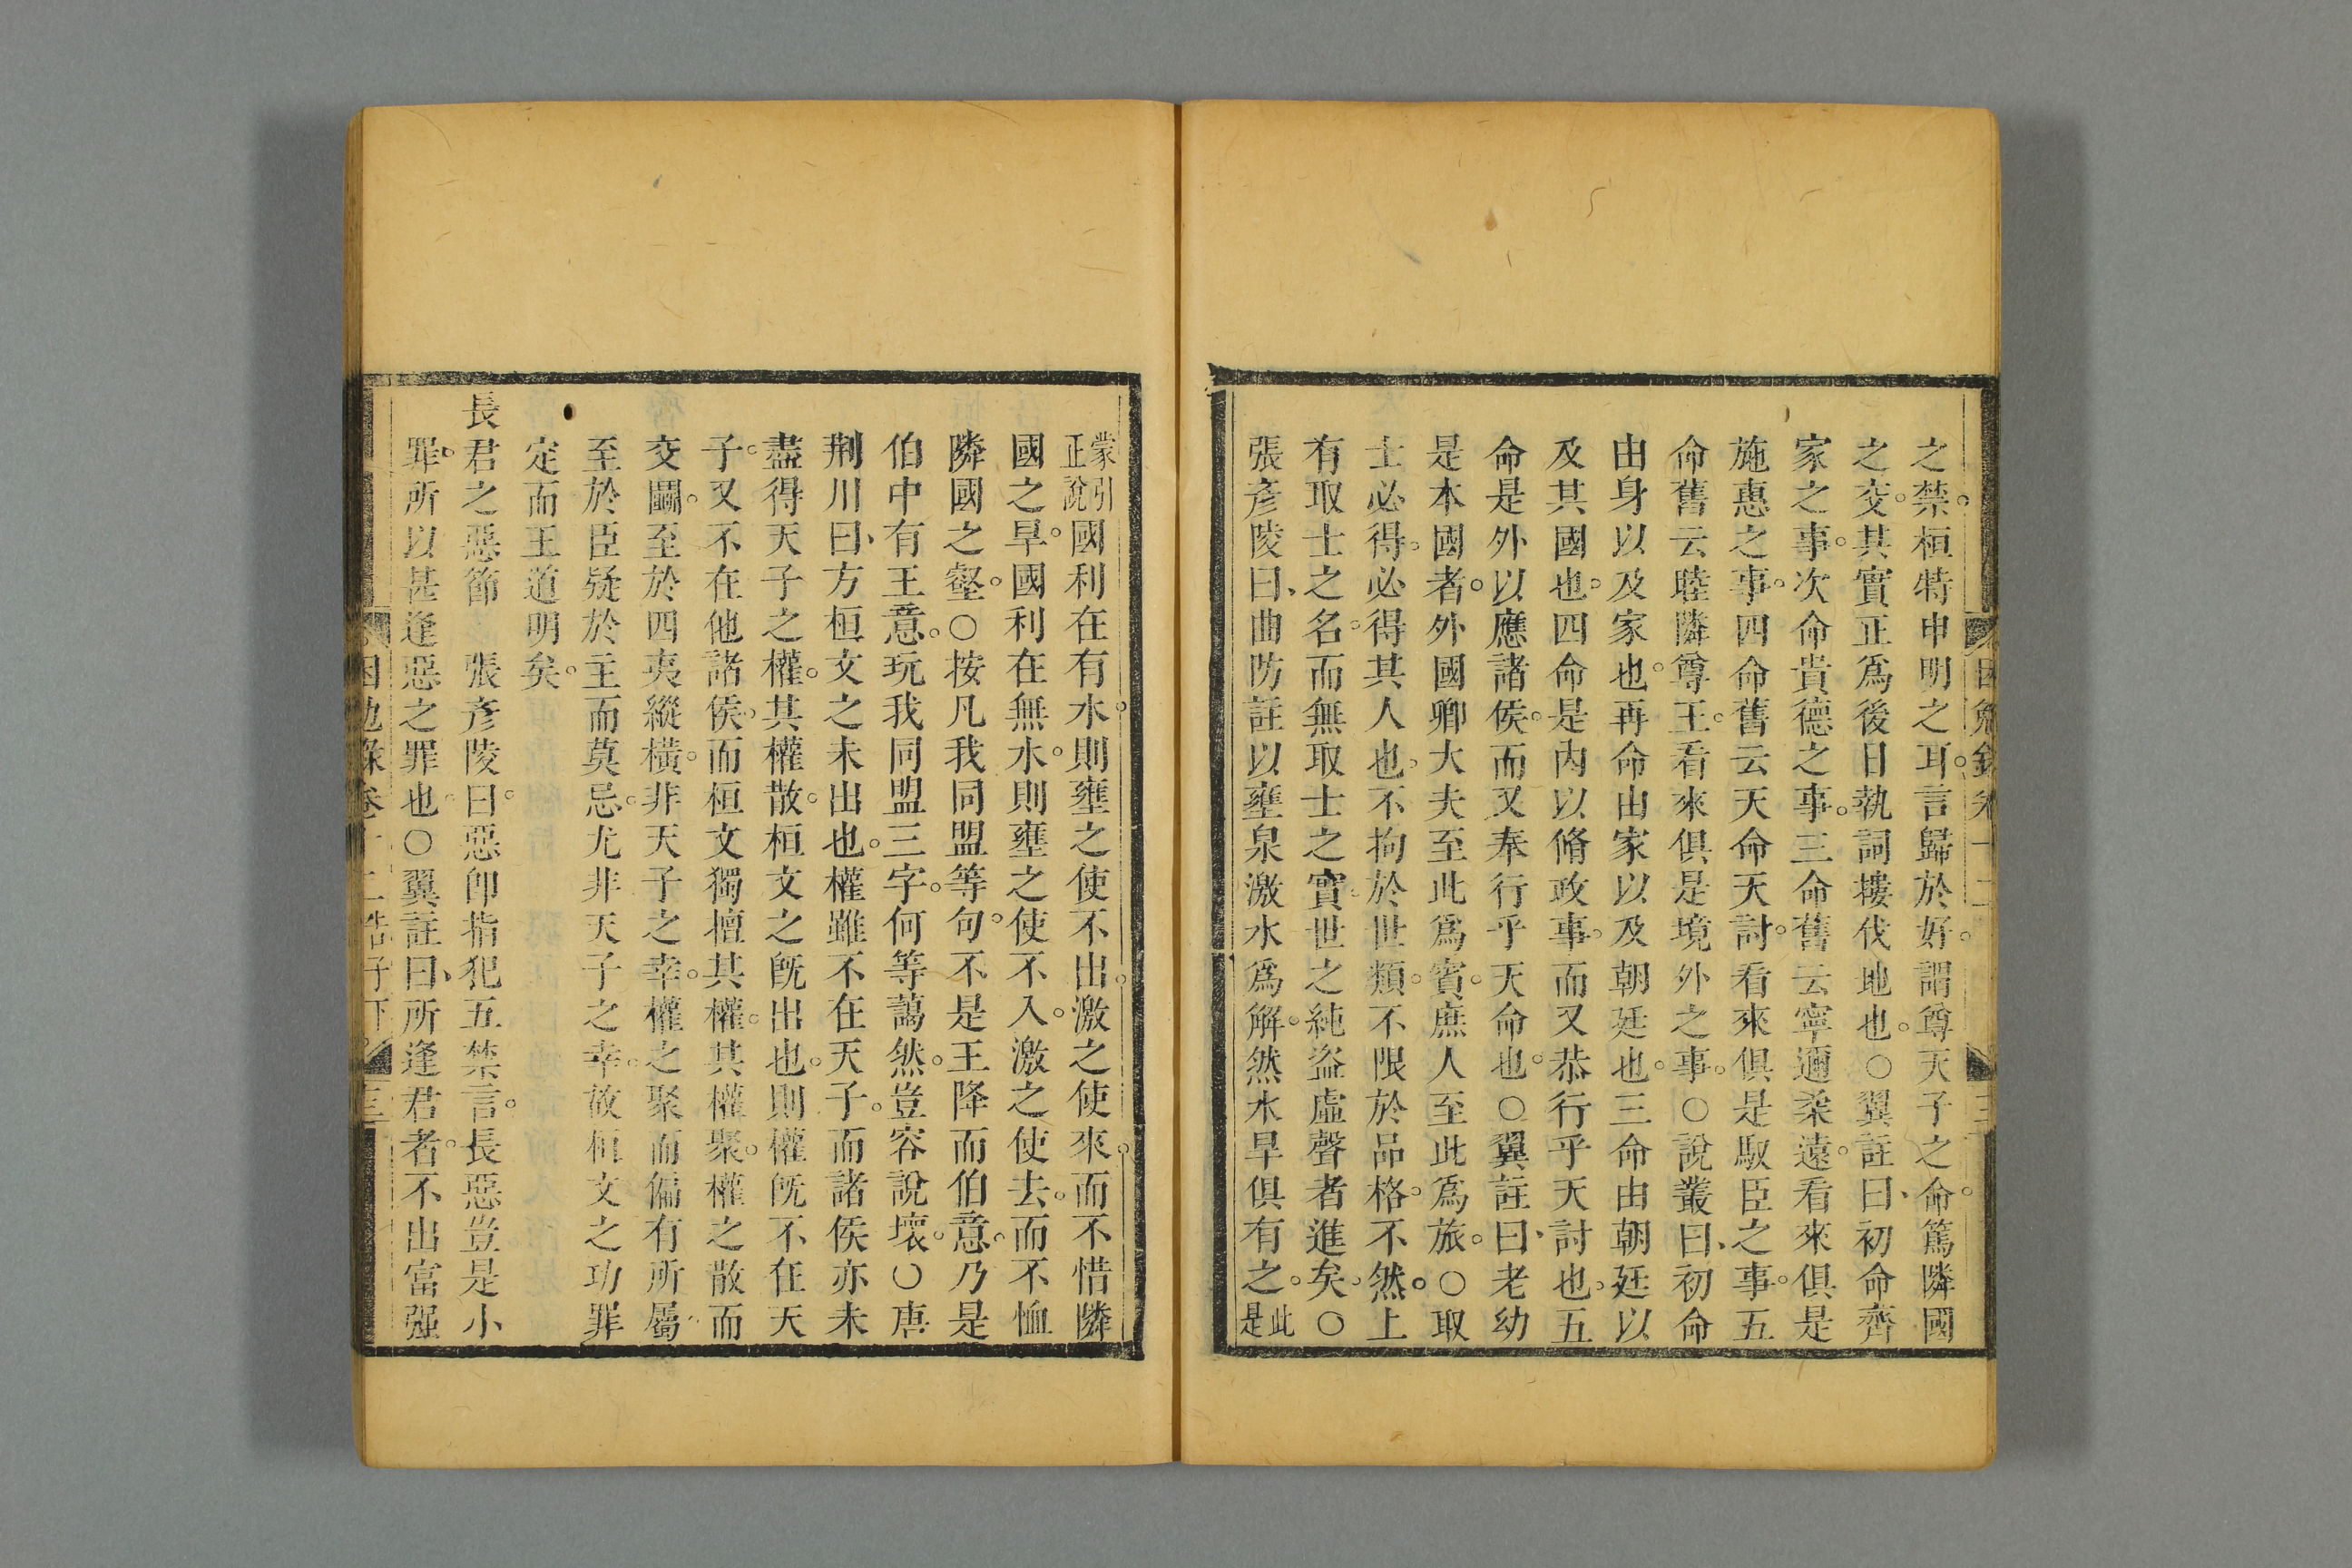 之禁桓特申明之耳言歸於好謂尊天子之命篤隣國
之交其實正爲後日執詞摟伐地也○翼註曰初命齊
家之事次命貴德之事三命舊云寧邇柔遠看來俱是
施惠之事四命舊云天命天討看來俱是馭臣之事五
命舊云睦隣尊王看來俱是境外之事○說叢曰初命
由身以及家也再命由家以及朝廷也三命由朝廷以
及其國也四命是內以脩政事而又恭行乎天討也五
命是外以應諸侯而又奉行乎天命也○翼註曰老幼
是本國者外國卿大夫至此爲賓庶人至此爲旅○取
士必得必得其人也不拘於世類不限於品格不然上
有取士之名而無取士之實世之純盜虛聲者進矣○
張彥陵曰曲防註以壅泉激水爲解然水旱俱有之此是
蒙引正說國利在有水則壅之使不出激之使來而不惜隣
國之旱國利在無水則壅之使不入激之使去而不恤
隣國之壑○按凡我同盟等句不是王降而伯意乃是
伯中有王意玩我同盟三字何等藹然豈容說壞○唐
荆川曰方桓文之未出也權雖不在天子而諸侯亦未
盡得天子之權其權散桓文之旣出也則權旣不在天
子又不在他諸侯而桓文獨擅其權其權聚權之散而
交鬭至於四夷縱橫非天子之幸權之聚而偏有所屬
至於臣疑於主而莫忌尤非天子之幸故桓文之功罪
定而王道明矣
長君之惡節　張彥陵曰惡卽指犯五禁言長惡豈是小
罪所以甚逢惡之罪也○翼註曰所逢君者不出富强